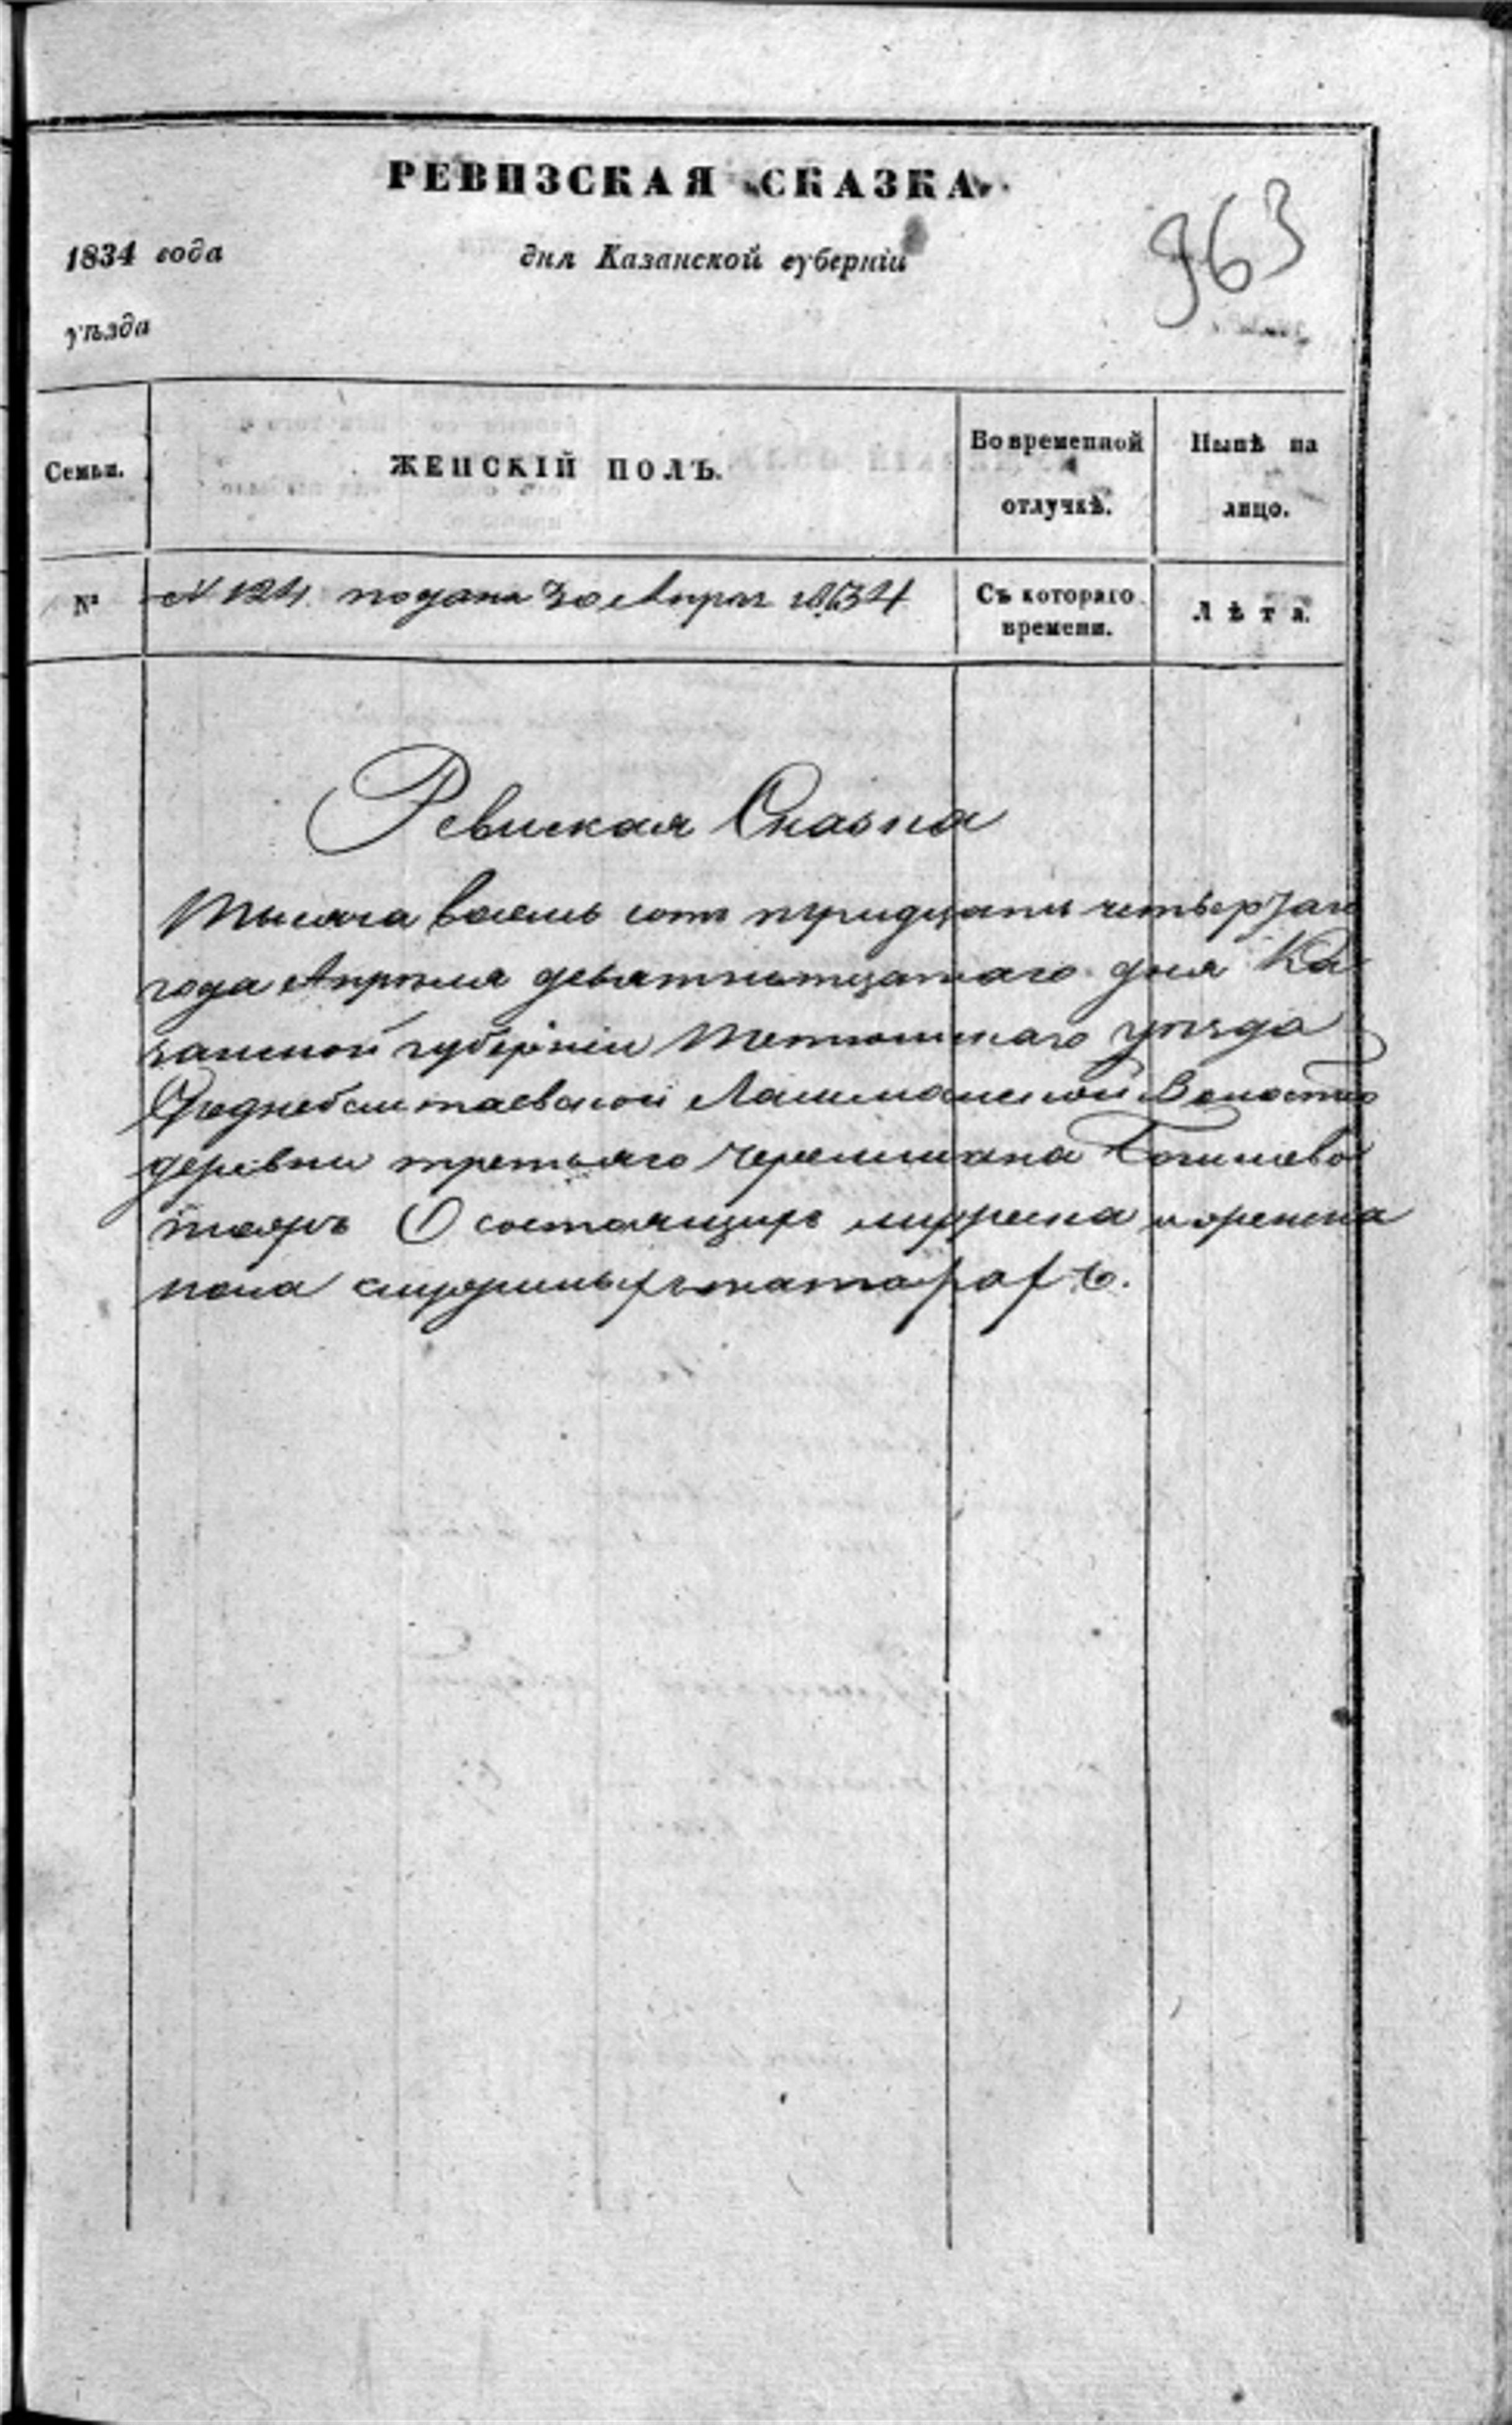 РЕВИЗСКАЯ СКАЗКА
963
1834 года дня Казанской губерніи
уѣзда
Семьи. ЖЕНСКІЙ ПОЛЪ. Во временной отлучкѣ. Нынѣ на лицо.
№ N 124. подана 30 Апрѣл 1834 Съ котораго времени. Лѣта.
Ревиская Сказка
Тысяча восемь сотъ тридцать четвертаго
года Апрѣля девятнатцатаго дня Ка
занской губерніи Тетюшскаго уѣзда
Среднебалтаевской Лашманской Волости
деревни третьяго Черемшана
О состоящихъ мужеска и женска
пола служилыхъ татарахъ.